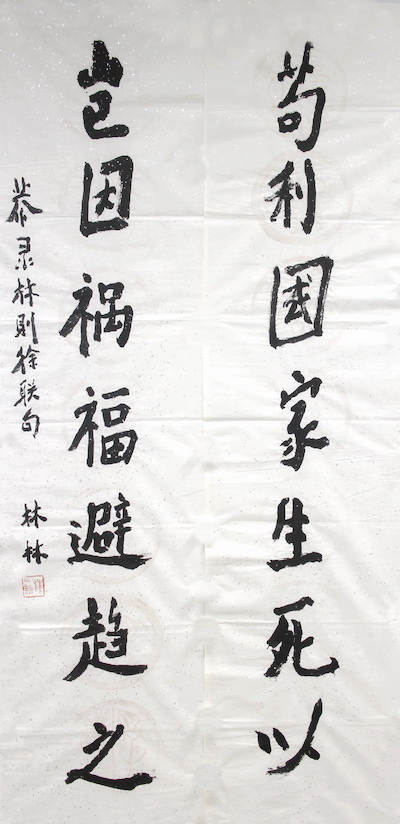 苟利國家生死以
岂因祸福避趋之
恭录林则徐联句
林林